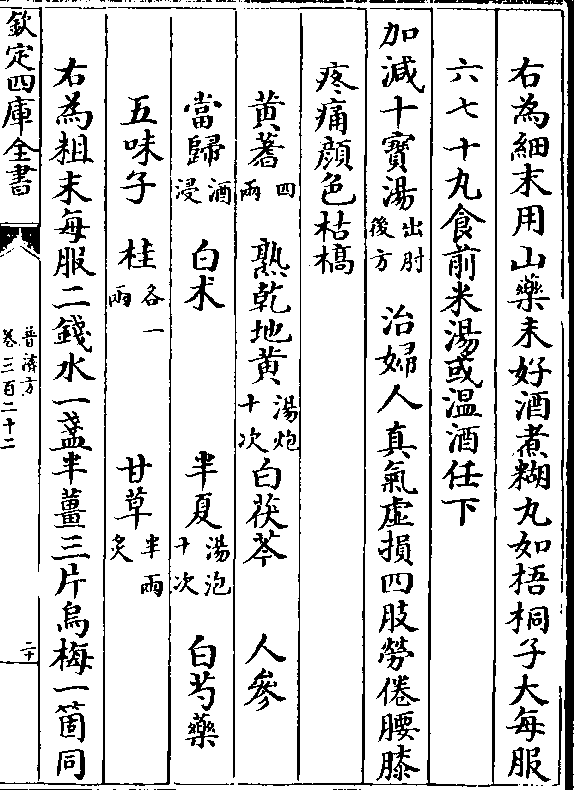 右為細末用山藥末好酒煮糊丸如梧桐子大每服
六七十丸食前米湯或温酒任下
加減十寳湯出肘後方 治婦人真氣虚損四肢勞倦腰膝
疼痛顔色枯槁
黄蓍四兩 熟乾地黄湯炮十次 白茯苓 人參
當歸酒浸 白术 半夏湯泡十次 白芍藥
五味子 桂各一兩 甘草半兩炙
右為粗末每服二錢水一盞半薑三片烏梅一箇同
欽定四庫全書
普濟方
卷三百二十二
二十